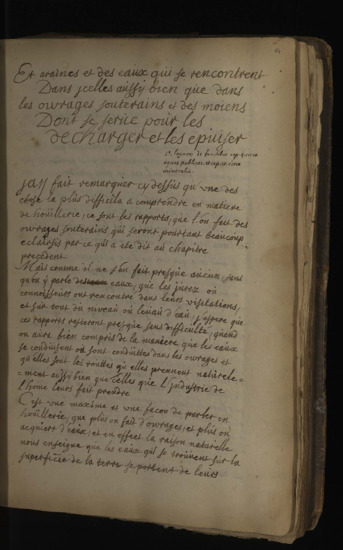 Et araines et des eaux qui se rencontrent
Dans jcelles aussÿ bien que dans
les ouvrages souterains et des moiens
Dont se sert pour les
decharger et les epuiser
jaÿ fait remarquer cy dessus qu'une des
chose la plus difficile à comprendre en matiere
de houillerie, ce sont les rapports, que l'on fait des
ouvrages souterains qui seront pourtant beaucoup
eclaircis par ce qui a été dit au chapitre
precedent
Mais comme il ne s'en fait presque aucun, sans
qu'on ÿ parle des eaux, que les jurez où
connoisseurs ont rencontré dans leurs visitations,
et sur tout du niveau où d'eau, j'espere que
ces rapports resteront presque sans difficulté, quand
on aura bien compris de la maniere que les eaux
se conduisent où sont conduittes dans les ouvrages et
qu'elles sont les routtes qu'elles prennent naturele=
=ment aussÿ bien que celles que l'industrie de
l'home leurs fait prendre
C'est une maxime et une facon de parler en
houillerie, que plus on fait d'ouvrages, et plus on
acquiert d'eaux, et en effect la raison naturelle
nous enseigne que les eaux qui se trouvent sur la
superficie de la terre se portent de leurs